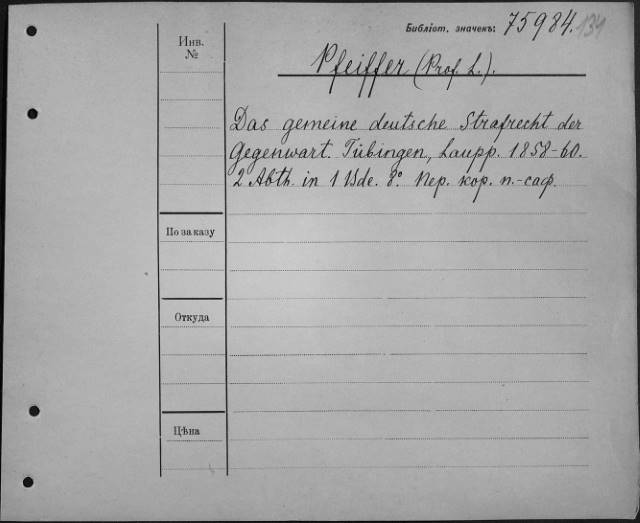 Библіот. значекъ: 75984. 134
Инв.
№
Pfeiffer (Prof. L.).
Das gemeine deutsche Strafrecht der
Gegenwart. Tübingen, Laupp. 1858-60.
2 Abth. in 1 Bde. 8º. Пер. кор. п.-саф.
По заказу
Откуда
Цѣна